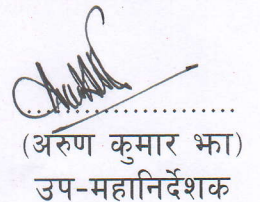 ....................
(अरुण कुमार झा)
उप-महानिर्देशक